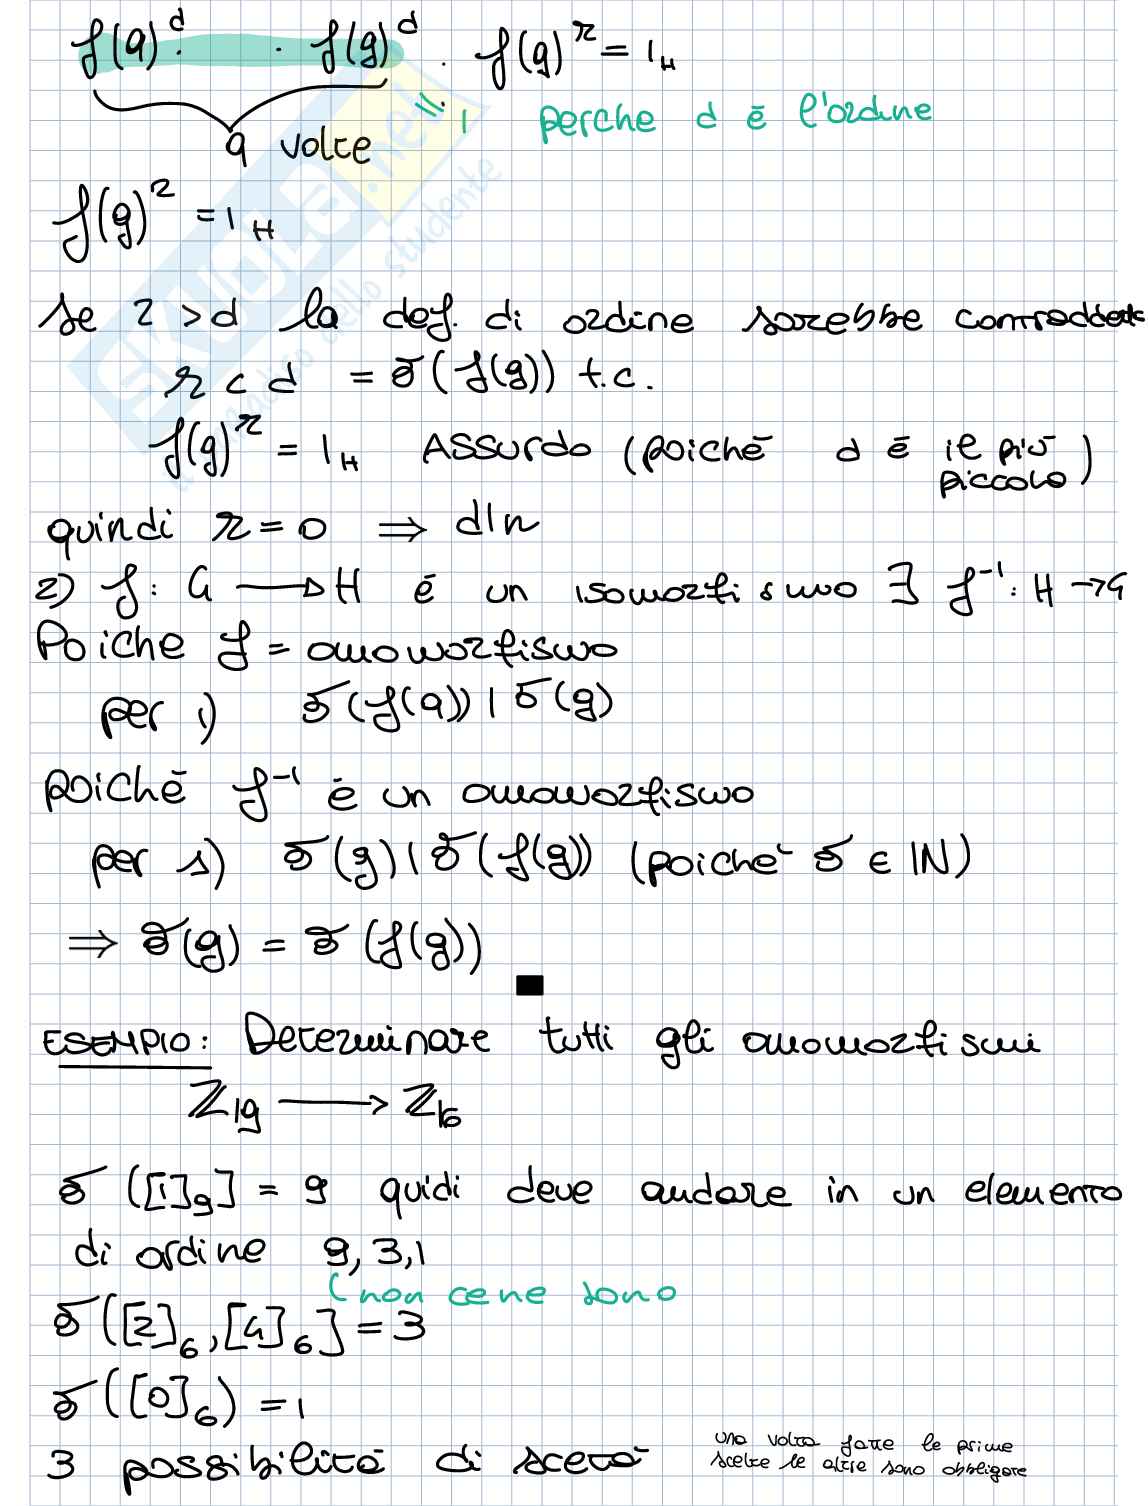 f(g)^d · · f(g)^d · f(g)^r = 1_H
q volte = 1 perche d è l'ordine
f(g)^r = 1_H
Se r > d la def. di ordine sarebbe contraddetta
r < d = σ(f(g)) t.c.
f(g)^r = 1_H Assurdo (poiché d è il più piccolo)
quindi r = 0 ⇒ d|n
2) f: G → H è un isomorfismo ∃ f^-1: H → G
Poiche f = omomorfismo
per 1) σ(f(g)) | σ(g)
poiché f^-1 è un omomorfismo
per 1) σ(g) | σ(f(g)) (poiche' σ ∈ IN)
⇒ σ(g) = σ(f(g))
■
ESEMPIO: Determinare tutti gli omomorfismi
Z_19 → Z_16
σ([1]_9] = 9 quidi deve andare in un elemento
di ordine 9, 3, 1
(non cene sono
σ([2]_6, [4]_6] = 3
σ([0]_6) = 1
3 possibilità di scetà
una volta fatte le prime
scelte le altre sono obbligate
SKUOLA.net
il mondo dello studente